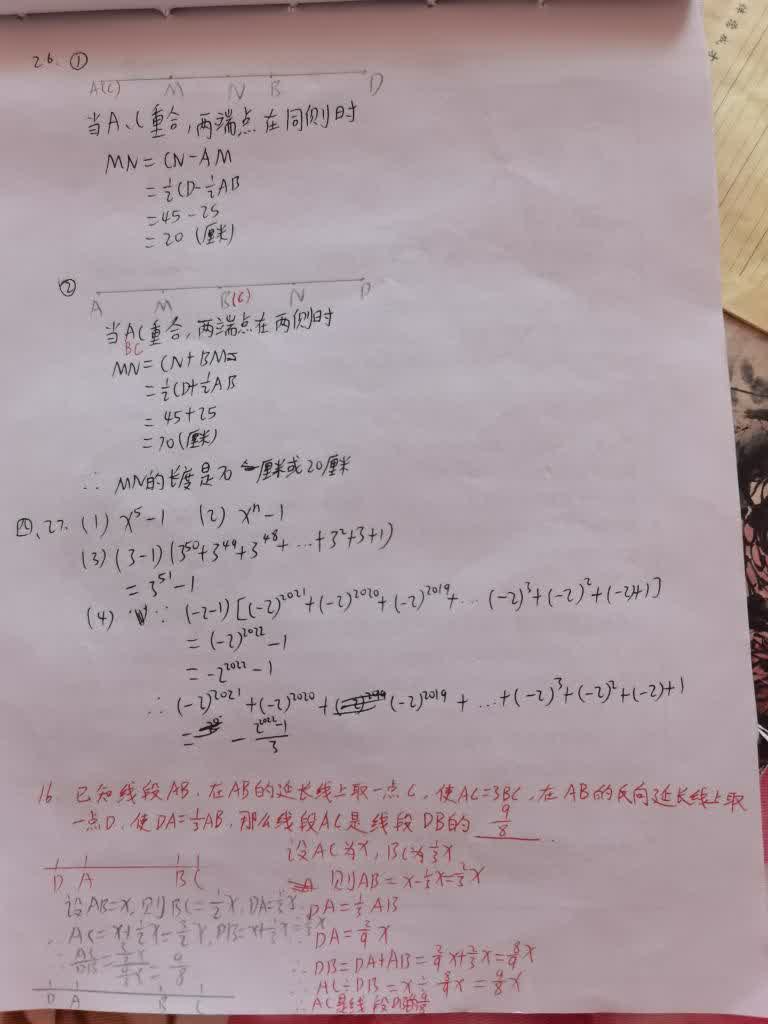 26. ①
A(C) M N B D
当A、C重合,两端点在同侧时
MN = CN - AM
= ½CD - ½AB
= 45 - 25
= 20 (厘米)
②
A M B(C) N D
当AC重合,两端点在两侧时
BC
MN = CN + BM
= ½CD + ½AB
= 45 + 25
= 70 (厘米)
∴ MN的长度是70厘米或20厘米
四、27. (1) x⁵-1 (2) xⁿ-1
(3) (3-1)(3⁵⁰+3⁴⁹+3⁴⁸+…+3²+3+1)
= 3⁵¹-1
(4) ∵ (-2-1)[(-2)²⁰²¹+(-2)²⁰²⁰+(-2)²⁰¹⁹+…(-2)³+(-2)²+(-2)+1]
= (-2)²⁰²²-1
= -2²⁰²²-1
∴ (-2)²⁰²¹+(-2)²⁰²⁰+(-2)²⁰¹⁹+…+(-2)³+(-2)²+(-2)+1
= -(2²⁰²²-1)/3
16. 已知线段AB,在AB的延长线上取一点C,使AC=3BC,在AB的反向延长线上取
一点D,使DA=⅓AB,那么线段AC是线段DB的 9/8
D A B C
设AB=x,则BC=½x,DA=⅓x
∴ AC=x+½x=3/2x,DB=x+⅓x=
∴ AC/DB = = 9/8
D A B C
设AC为x,BC为⅓x
则AB=x-⅓x=⅔x
DA=⅓AB
∴ DA=2/9x
∴ DB=DA+AB=2/9x+2/3x=8/9x
∴ AC÷DB=x÷8/9x=9/8x
∴ AC是线段DB的9/8